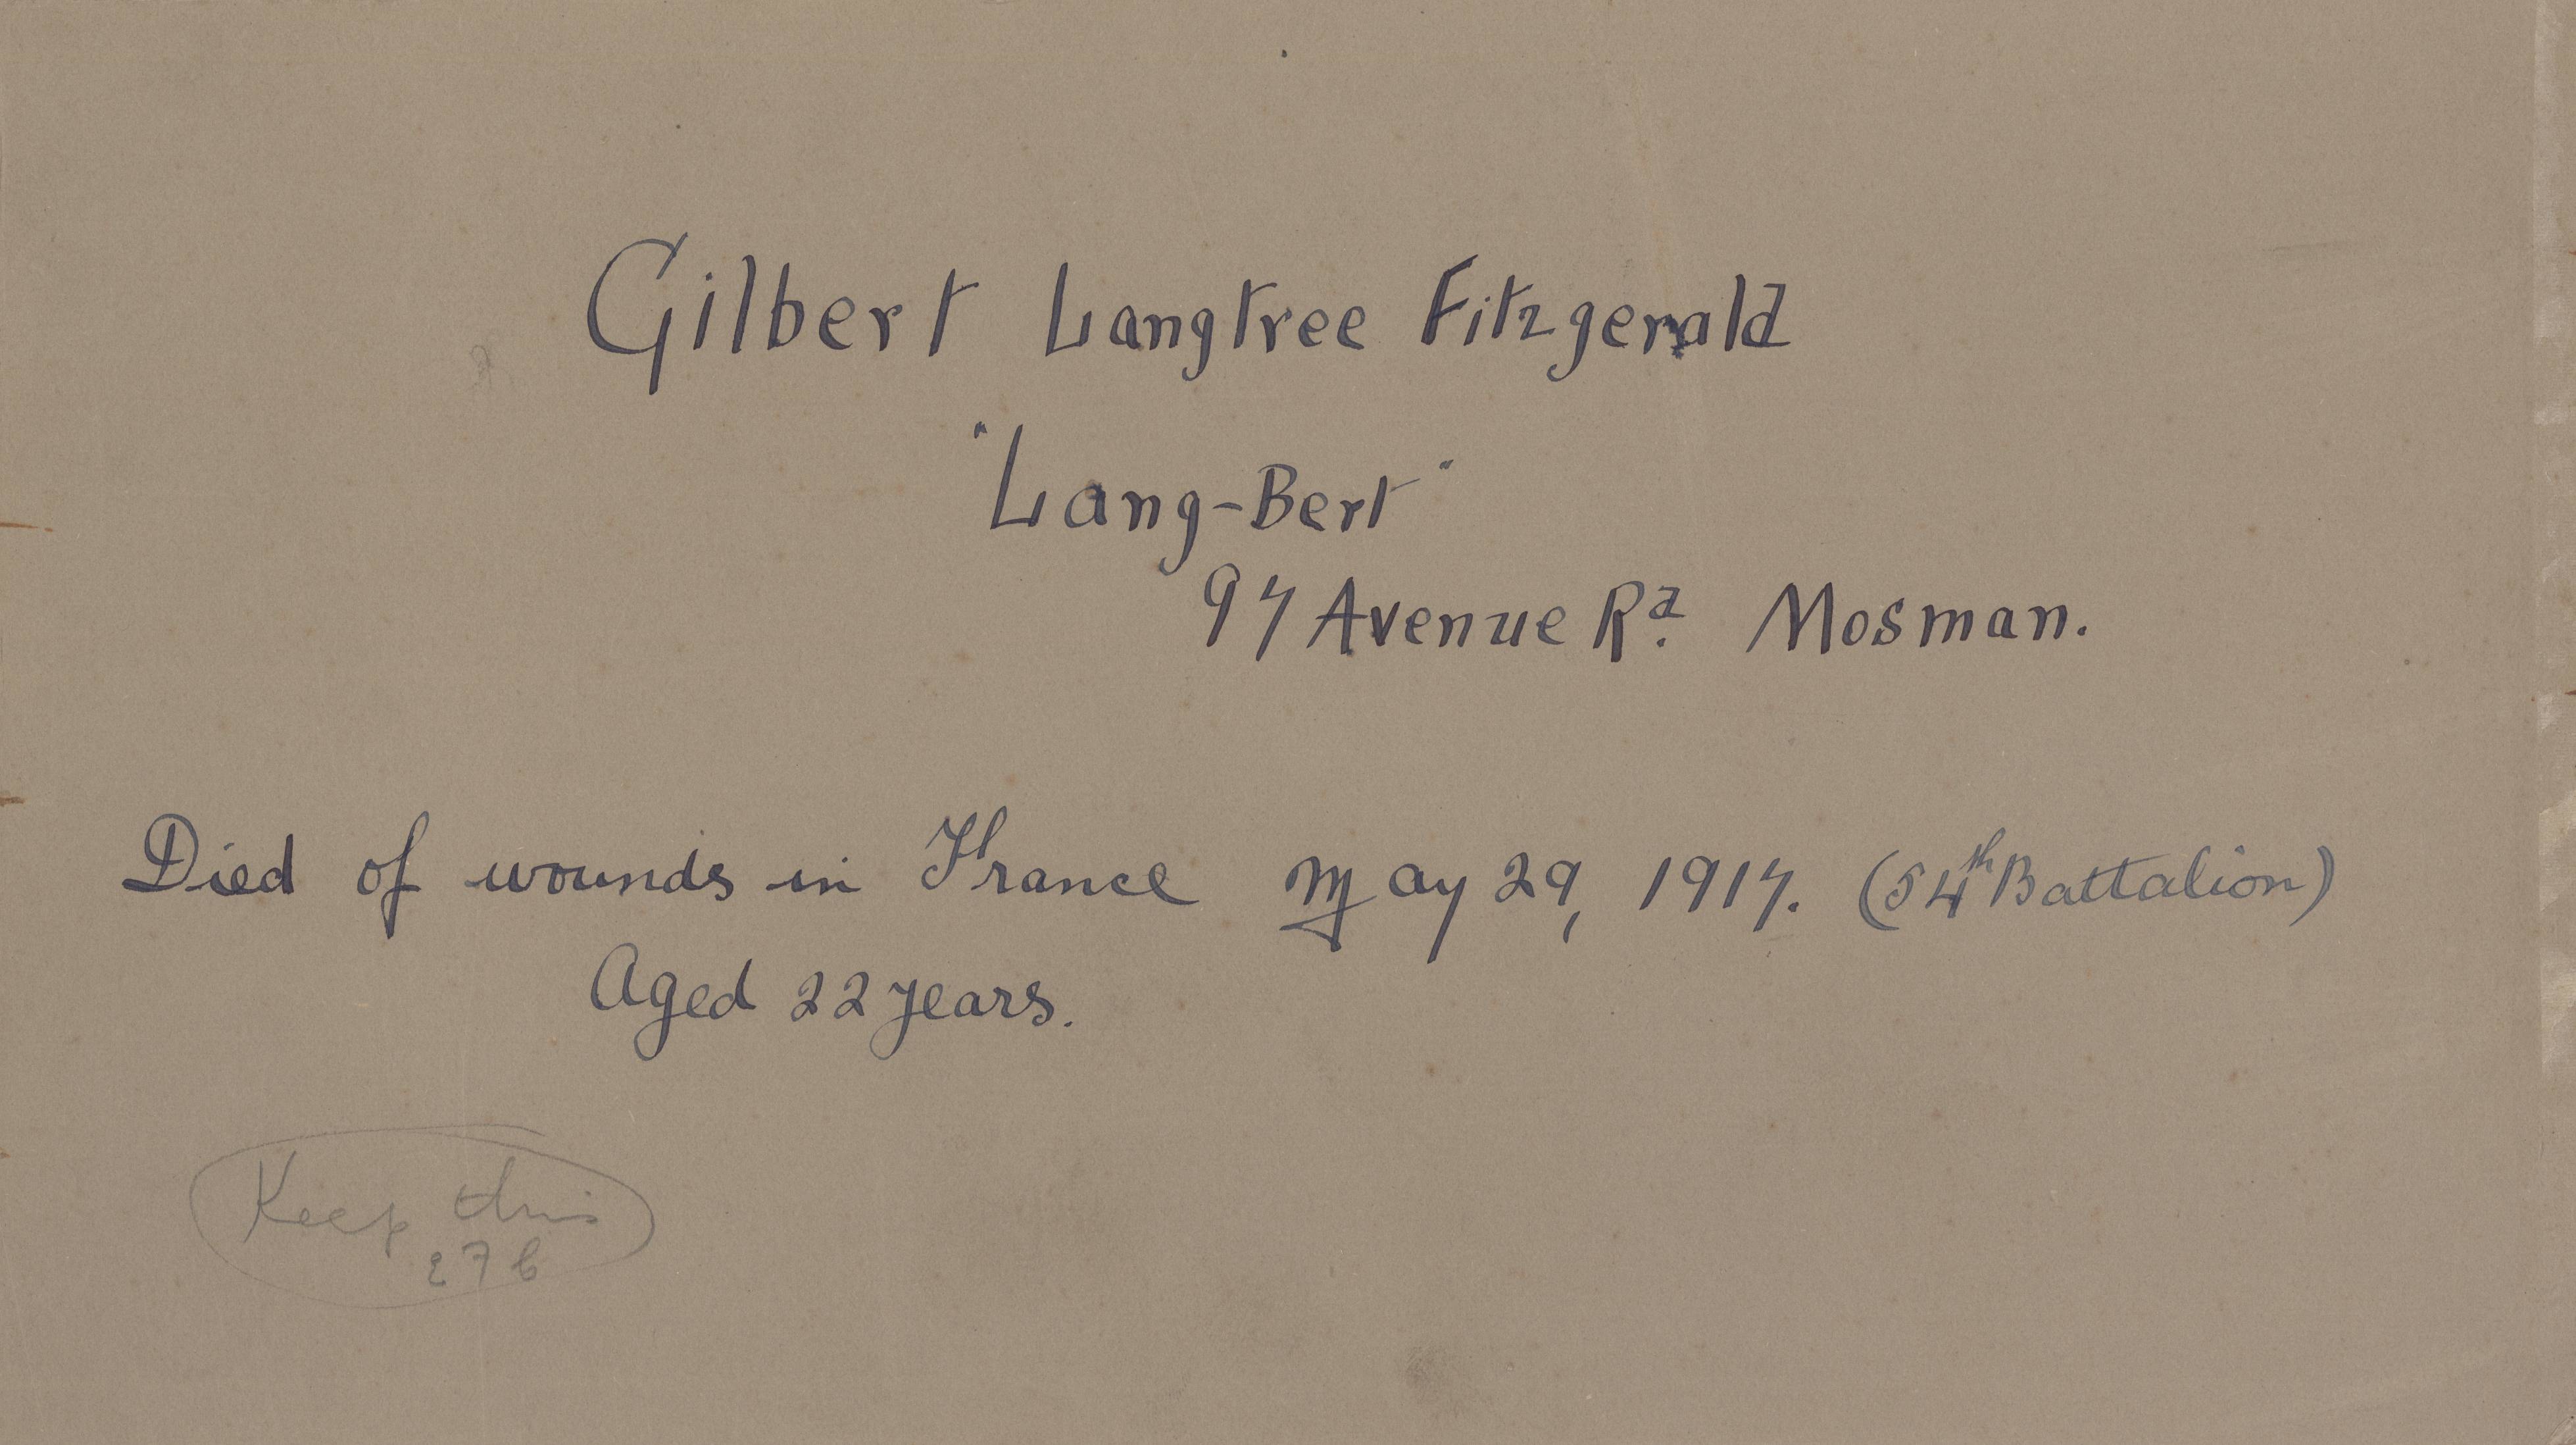 Gilbert Langtree Fitzgerald
"Lang-Bert"
97 Avenue Rd. Mosman.
Died of wounds in France May 29, 1917. (54th Battalion)
Aged 22 years.
Keep this
276